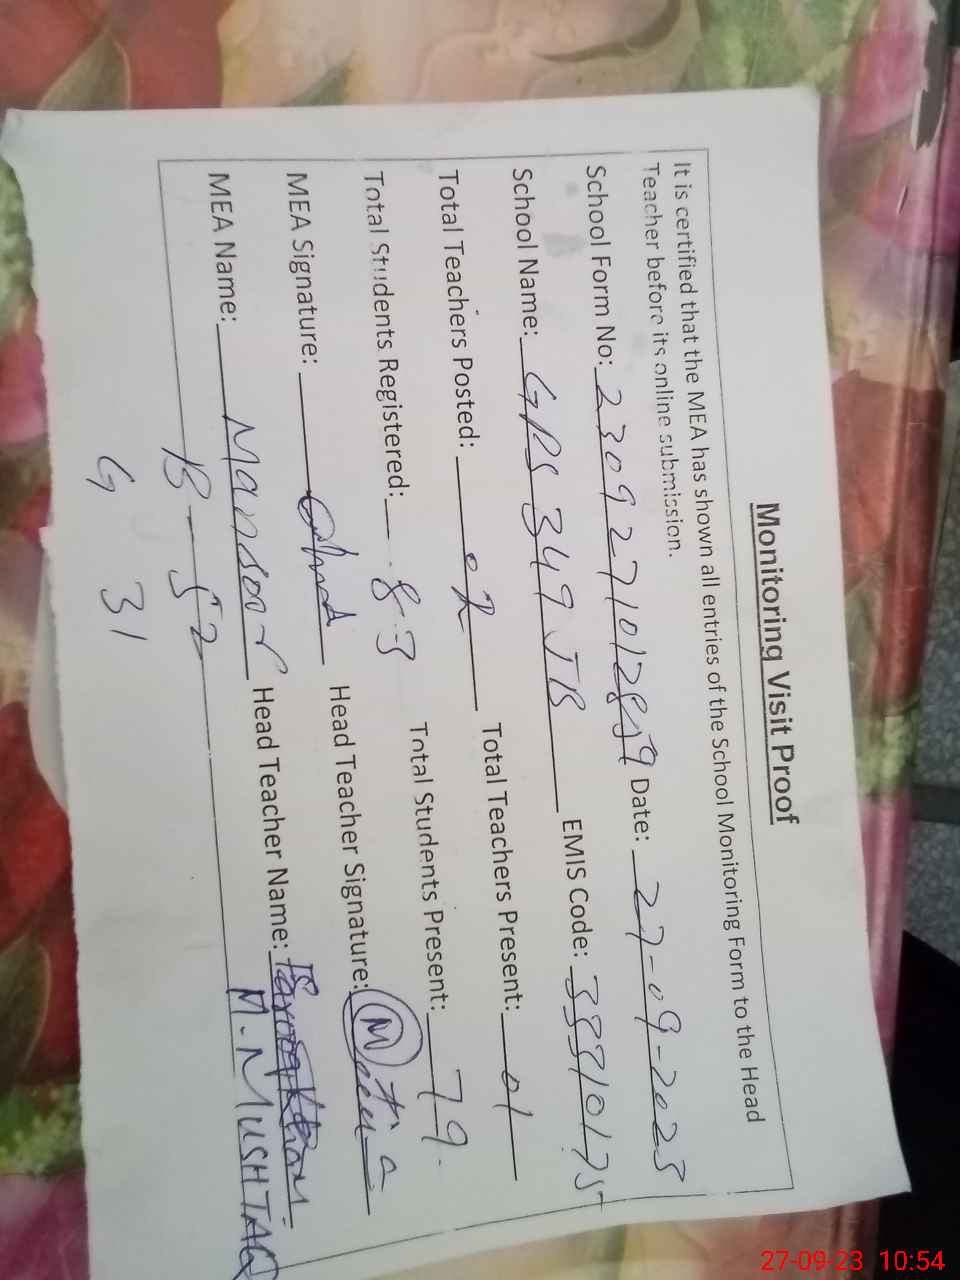 Monitoring Visit Proof
It is certified that the MEA has shown all entries of the School Monitoring Form to the Head
Teacher before its online submission.
School Form No: 2309271012859 Date: 27-09-2023
School Name: GPS 349 JB EMIS Code: 33810175
Total Teachers Posted: 02 Total Teachers Present: 01
Total Students Registered: 83 Total Students Present: 79
MEA Signature: Head Teacher Signature:
MEA Name: Mansoor Head Teacher Name:
M. MUSHTAQ
B - 52
G 31
27-09-23 10:54